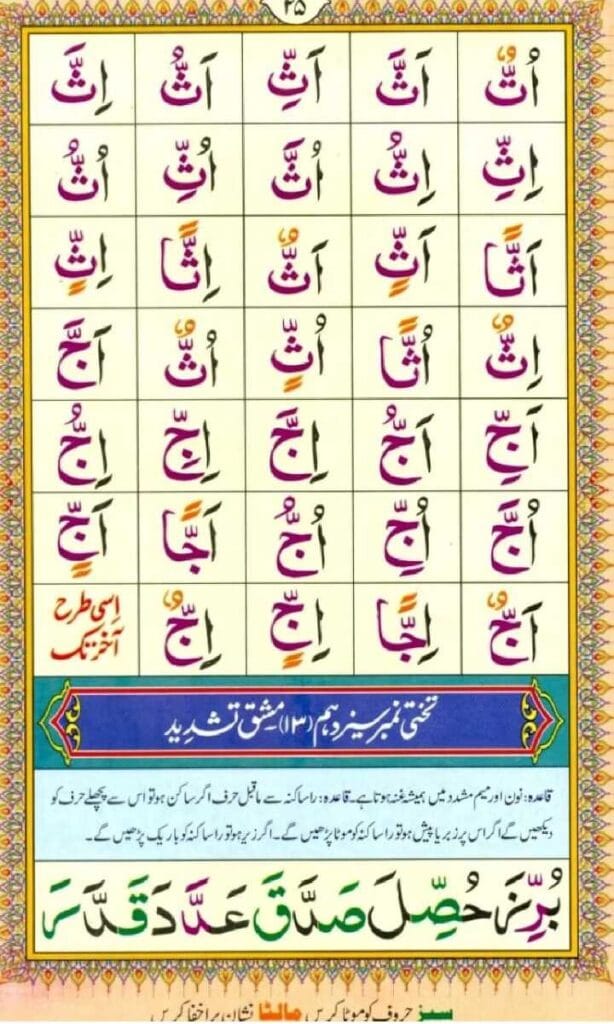 اُتٌّ اَثَّ اَثِّ اَثُّ اِثَّ
اِثِّ اِثُّ اُثَّ اُثِّ اُثُّ
اَثًّا اَثٍّ اَثٌّ اِثًّا اِثٍّ
اِثٌّ اُثًّا اُثٍّ اُثٌّ اَجَّ
اَجِّ اَجُّ اِجَّ اِجِّ اِجُّ
اُجَّ اُجِّ اُجُّ اَجًّا اَجٍّ
اَجٌّ اِجًّا اِجٍّ اِجٌّ اِسی طرح آخر تک
تختی نمبر سیز دہم (۱۳)۔ مشق تشدید
قاعدہ: نون اور میم مشدد میں ہمیشہ غنہ ہوتا ہے۔ قاعدہ: را ساکنہ سے ماقبل حرف اگر ساکن ہو تو اس سے پچھلے حرف کو
دیکھیں گے اگر اس پر زبر یا پیش ہو تو را ساکنہ کو موٹا پڑھیں گے۔ اگر زیر ہو تو را ساکنہ کو باریک پڑھیں گے۔
بُرِّزَ حُصِّلَ صَدَّقَ عَدَّدَ قَدَّرَ
سبز حروف کو موٹا کریں مالٹا نشان پر اخفا کریں